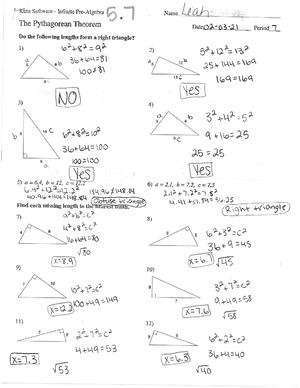 Kuta Software - Infinite Pre-Algebra 5.7 Name Leah
The Pythagorean Theorem Date 02-03-21 Period 7
Do the following lengths form a right triangle?
1) 6²+8²=9²
36+64=81
100≠81
NO
2) 5²+12²=13²
25+144=169
169=169
Yes
3) 6²+8²=10²
36+64=100
100=100
Yes
4) 3²+4²=5²
9+16=25
25=25
Yes
5) a = 6.4, b = 12, c = 12.2
6.4²+12²=12.2²
40.96+144=148.84
184.96≠148.84
Obtuse triangle
6) a = 2.1, b = 7.2, c = 7.5
2.1²+7.2²=7.5²
4.41+51.84=56.25
Right triangle
Find each missing length to the nearest tenth.
7) 4²+8²=c²
16+64=80
√80
x=8.9
8) 6²+3²=c²
36+9=45
x=6.7 √45
9) 10²+7²=c²
100+49=149
x=12.2
10) 3²+7²=c²
9+49=58
x=7.6 √58
11) 2²+7²=c²
4+49=53
x=7.3 √53
12) 6²+2²=c²
36+4=40
x=6.3 √40